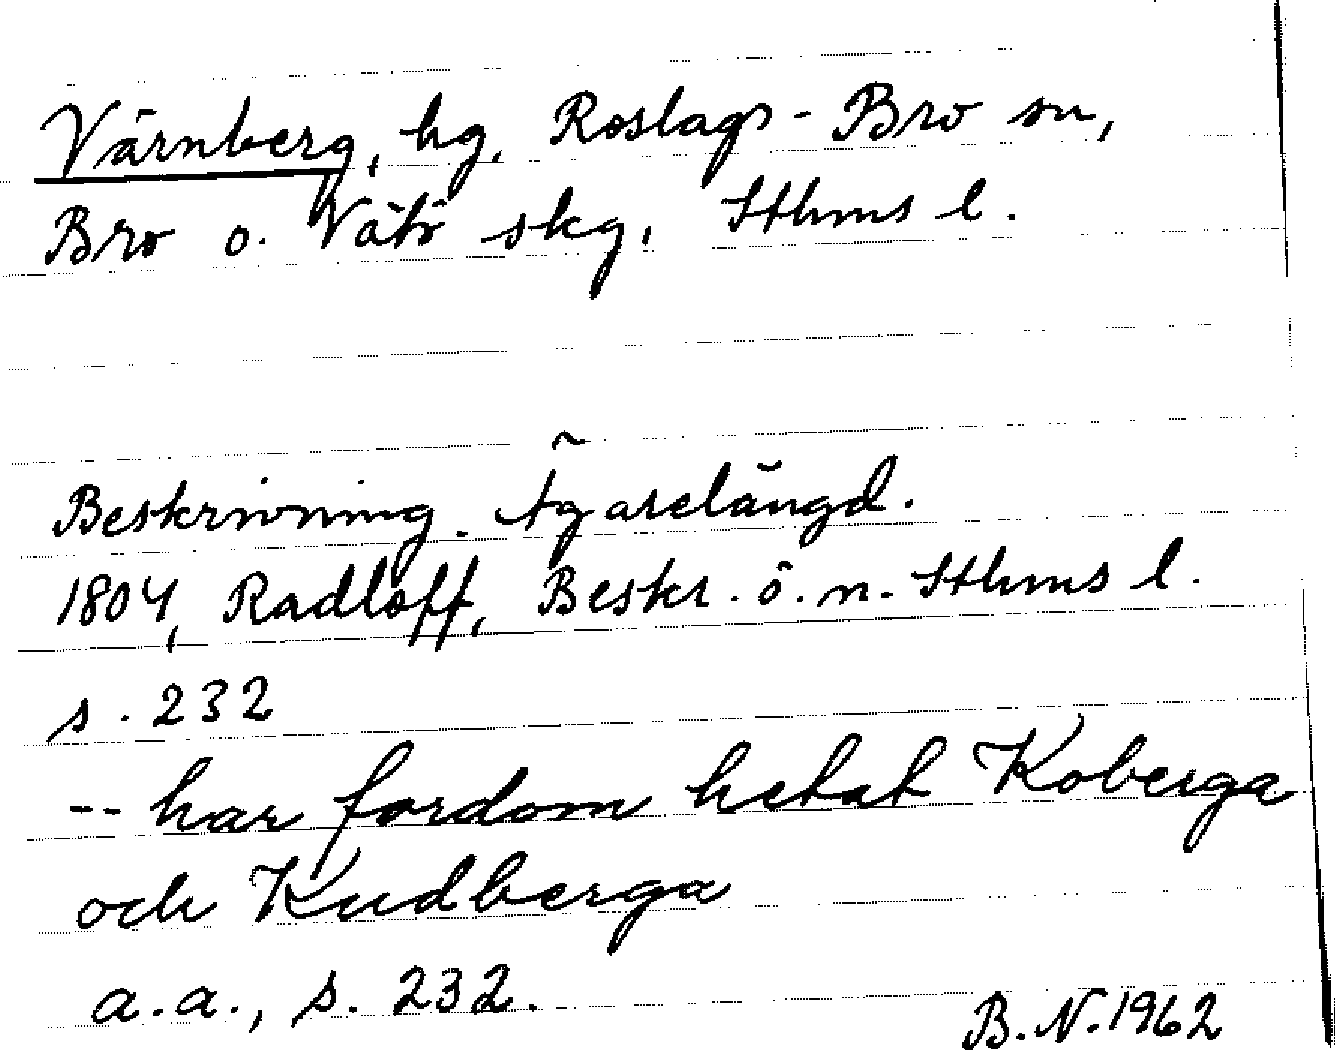 Värnberg, hg, Roslags-Bro sn,
Bro o. Vätö skg, Sthms l.
Beskrivning. Ägarelängd.
1804, Radloff, Beskr. ö. n. Sthms l.
s. 232
-- har fordom hetat Koberga
och Kudberga
a.a., s. 232.
B.N. 1962